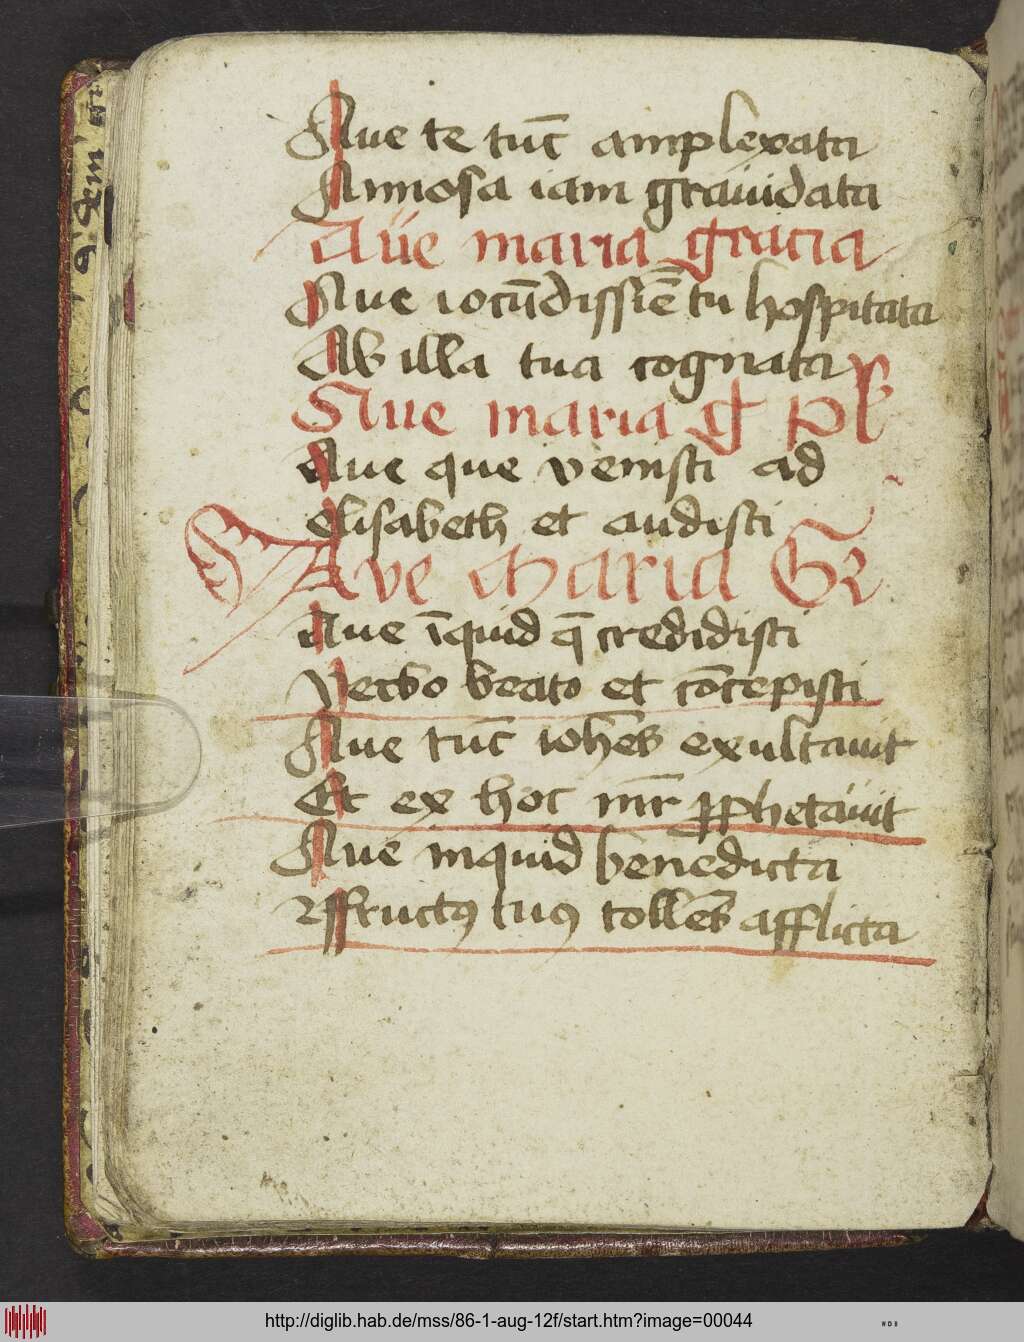 Aue te tūc amplexata
Annosa iam grauidata
Aue maria gracia
Aue iocūdissīe tu hospitata
Ab illa tua cognata
Aue maria ḡ pl̄
Aue que venisti ad
elisabeth et audisti
Ave Maria Gr̄
Aue īquid q̄ credidisti
Verbo beato et cōcepisti
Aue tūc ioh̄es exultauit
Et ex hoc mr̄ ꝓphetauit
Aue inquid benedicta
⁊ ffructꝰ tuꝰ tolles afflicta
http://diglib.hab.de/mss/86-1-aug-12f/start.htm?image=00044